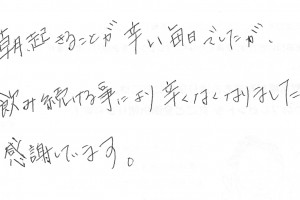 朝起きることが辛い毎日でしたが、
飲み続ける事により辛くはなくなりました
感謝しています。